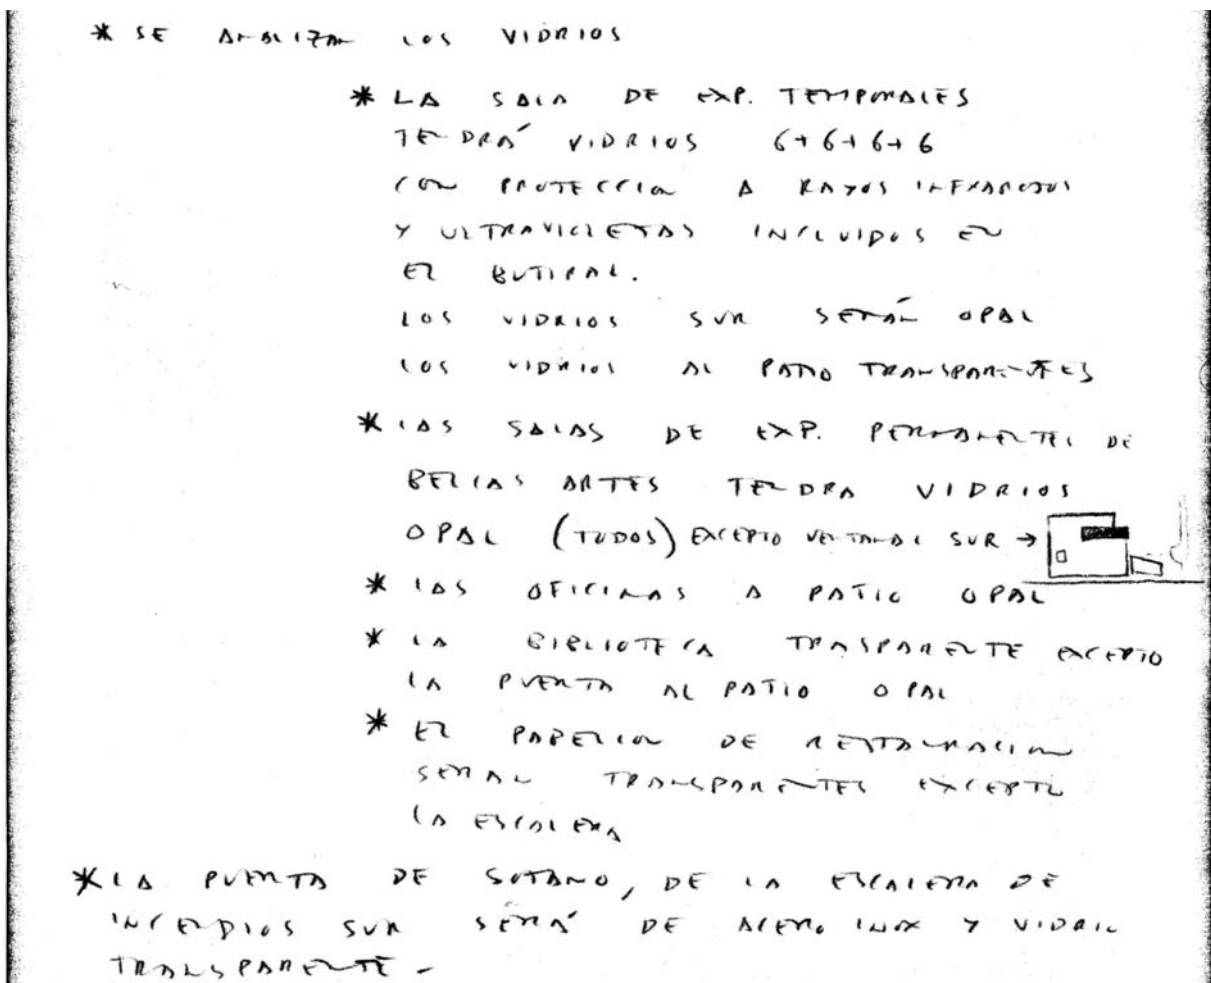 * SE ANALIZAN LOS VIDRIOS
* LA SALA DE EXP. TEMPORALES
TENDRÁ VIDRIOS 6+6+6+6
CON PROTECCION A RAYOS INFRAROJOS
Y ULTRAVIOLETAS INCLUIDOS EN
EL BUTIRAL.
LOS VIDRIOS SUR SERÁN OPAL
LOS VIDRIOS AL PATIO TRANSPARENTES
* LAS SALAS DE EXP. PERMANENTES DE
BELLAS ARTES TENDRA VIDRIOS
OPAL (TODOS) EXCEPTO VENTANAL SUR →
* LAS OFICINAS A PATIO OPAL
* LA BIBLIOTECA TRASPARENTE EXCEPTO
LA PUERTA AL PATIO OPAL
* EL PABELLON DE RESTAURACION
SERAN TRANSPARENTES EXCEPTO
LA ESCALERA
* LA PUERTA DE SOTANO, DE LA ESCALERA DE
INCENDIOS SUR SERÁ DE ACERO INOX Y VIDRIO
TRANSPARENTE -